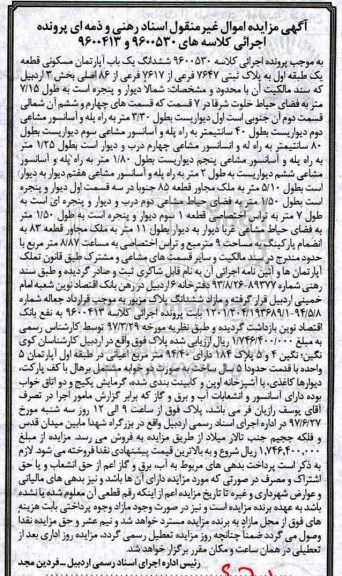 آگهی مزایده اموال غیرمنقول اسناد رهنی و ذمه ای پرونده
اجرائی کلاسه های ۹۶۰۰۵۳۰ و ۹۶۰۰۴۱۳
به موجب پرونده اجرائی کلاسه ۹۶۰۰۵۳۰ ششدانگ یک باب آپارتمان مسکونی قطعه
یک طبقه اول به پلاک ثبتی ۷۶۴۷ فرعی از ۷۶۱۷ فرعی از ۸۶ اصلی بخش ۳ اردبیل
که سند مالکیت آن با محدود و مشخصات: شمالا دیوار و پنجره است به طول ۷/۱۵
متر به فضای حیاط خلوت شرقا در ۷ قسمت که قسمت های چهارم و ششم آن شمالی
قسمت دوم آن جنوبی است اول دیواریست بطول ۳/۳۰ متر به راه پله و آسانسور مشاعی
دوم دیواریست بطول ۴۰ سانتیمتر به راه پله و آسانسور مشاعی سوم دیواریست بطول
۸۰ سانتیمتر به راه پله و آسانسور مشاعی چهارم درب و دیوار است بطول ۱/۲۵ متر
به راه پله و آسانسور مشاعی پنجم دیواریست بطول ۱/۸۰ متر به راه پله و آسانسور
مشاعی ششم دیواریست به طول ۲ متر به راه پله و آسانسور مشاعی هفتم دیوار به دیوار
است بطول ۵/۱۰ متر به ملک مجاور قطعه ۸۵ جنوبا در سه قسمت اول دیوار و پنجره
است بطول ۱/۵۰ متر به فضای حیاط مشاعی دوم درب و دیوار و پنجره ای است به
طول ۷ متر به تراس اختصاصی قطعه ۱ سوم دیوار و پنجره است به طول ۱/۵۰ متر
به فضای حیاط مشاعی غربا دیوار به دیوار بطول ۱۱ متر به ملک مجاور قطعه ۸۳ به
انضمام پارکینگ به مساحت ۹ مترمربع و تراس اختصاصی به مساحت ۸/۸۷ متر مربع با
حدود مندرج در سند مالکیت و سایر قسمت های مشاعی و مشترک طبق قانون تملک
آپارتمان ها و آئین نامه اجرائی آن به نام قابل شاکری ثبت و صادر گردیده و طبق سند
رهنی شماره ۸۹۳۷۷-۹۳/۸/۲۶ دفترخانه ۶ اردبیل در رهن بانک اقتصاد نوین شعبه امام
خمینی اردبیل قرار گرفته و مازاد ششدانگ پلاک مزبور به موجب قرارداد جعاله شماره
۱۲۰۱/۲۰۴/۱۹۳۶۸۹/۱-۹۴/۵/۸ بابت پرونده اجرایی کلاسه ۹۶۰۰۴۱۳ به نفع بانک
اقتصاد نوین بازداشت گردیده و طبق نظریه مورخه ۹۷/۳/۲۹ توسط کارشناس رسمی
به مبلغ ۱/۷۴۶/۴۰۰/۰۰۰ ریال ارزیابی شده پلاک فوق واقع در اردبیل کارشناسان کوی
نگین، نگین ۴ و ۵ پلاک ۱۸۴ دارای ۹۴/۴۰ متر مربع اعیانی در طبقه اول آپارتمان ۵
واحده با قدمت حدودا ۵ سال ساخت به صورت دو خوابه مشتمل برهال با کف پارکت،
دیوارها کاغذی، با آشپزخانه اوپن و کابینت بندی شده، گرمایش پکیج و دو اتاق خواب
بوده دارای آسانسور و انشعابات آب و برق و گاز که برابر گزارش مامور اجرا در تصرف
آقای یوسف رازیان فر می باشد. پلاک فوق از ساعت ۹ الی ۱۲ روز سه شنبه مورخ
۹۷/۶/۲۷ در اداره اجرای اسناد رسمی اردبیل واقع در بزرگراه شهدا مابین میدان قدس
و فلکه ججیم جنب تالار میلاد از طریق مزایده به فروش می رسد. مزایده از مبلغ
۱,۷۴۶,۴۰۰,۰۰۰ ریال شروع و به بالاترین قیمت پیشنهادی نقدا فروخته می شود. لازم
به ذکر است پرداخت بدهی های مربوط به آب، برق و گاز اعم از حق انشعاب و یا حق
اشتراک و مصرف در صورتی که مورد مزایده دارای آن ها باشد و نیز بدهی های مالیاتی
و عوارض شهرداری و غیره تا تاریخ مزایده اعم از اینکه رقم قطعی آن معلوم شده یا نشده
باشد به عهده برنده مزایده است و نیز در صورت وجود مازاد وجوه پرداختی بابت هزینه
های فوق از محل مازاد به برنده مزایده مسترد خواهد شد و نیم عشر و حق مزایده نقدا
وصول می گردد ضمنا چنانچه روز مزایده تعطیل رسمی گردد، مزایده روز اداری بعد از
تعطیلی در همان ساعت و مکان مقرر برگزار خواهد شد.
رئیس اداره اجرای اسناد رسمی اردبیل - فردین مجد